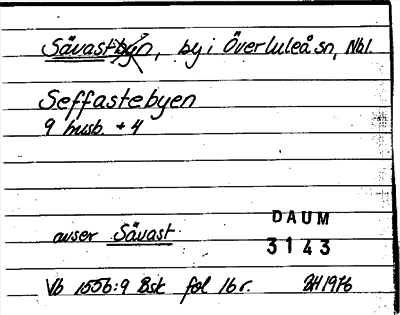 Sävastbyn, by i Överluleå sn, Nbl.
Seffastebyen
9 husb. + 4
DAUM
avser Sävast
3143
Vb 1556:9 Bsk fol 16r. 2H1976